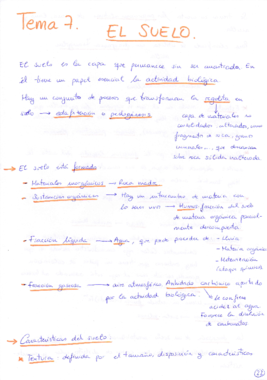 Tema 7.
EL SUELO.
El suelo es la capa que permanece en su
En él tiene un papel esencial la actividad biológica.
Hay un conjunto de procesos que transforman la regolita en
suelo → edafización o pedogénesis
capa de materiales no
consolidados, alterados, como
fragmentos de roca, granos
minerales..., que descansa
sobre roca sólida inalterada
→ El suelo está formado
- Materiales inorgánicos → Roca madre
- Sustancias orgánicas → Hay un intercambio de materia con
lo seres vivos → Humus: fracción del suelo
de materia orgánica parcial-
mente descompuesta
- Fracción líquida → Agua, que puede proceder de: - lluvia
- Materia orgánica
- Meteorización
- Fracción gaseosa → aire atmosférico. Anhídrido carbónico aportado
por la actividad biológica. Le confiere
acidez al agua
Favorece la disolución
de carbonatos
→ Características del suelo:
Textura definida por el tamaño, disposición y características